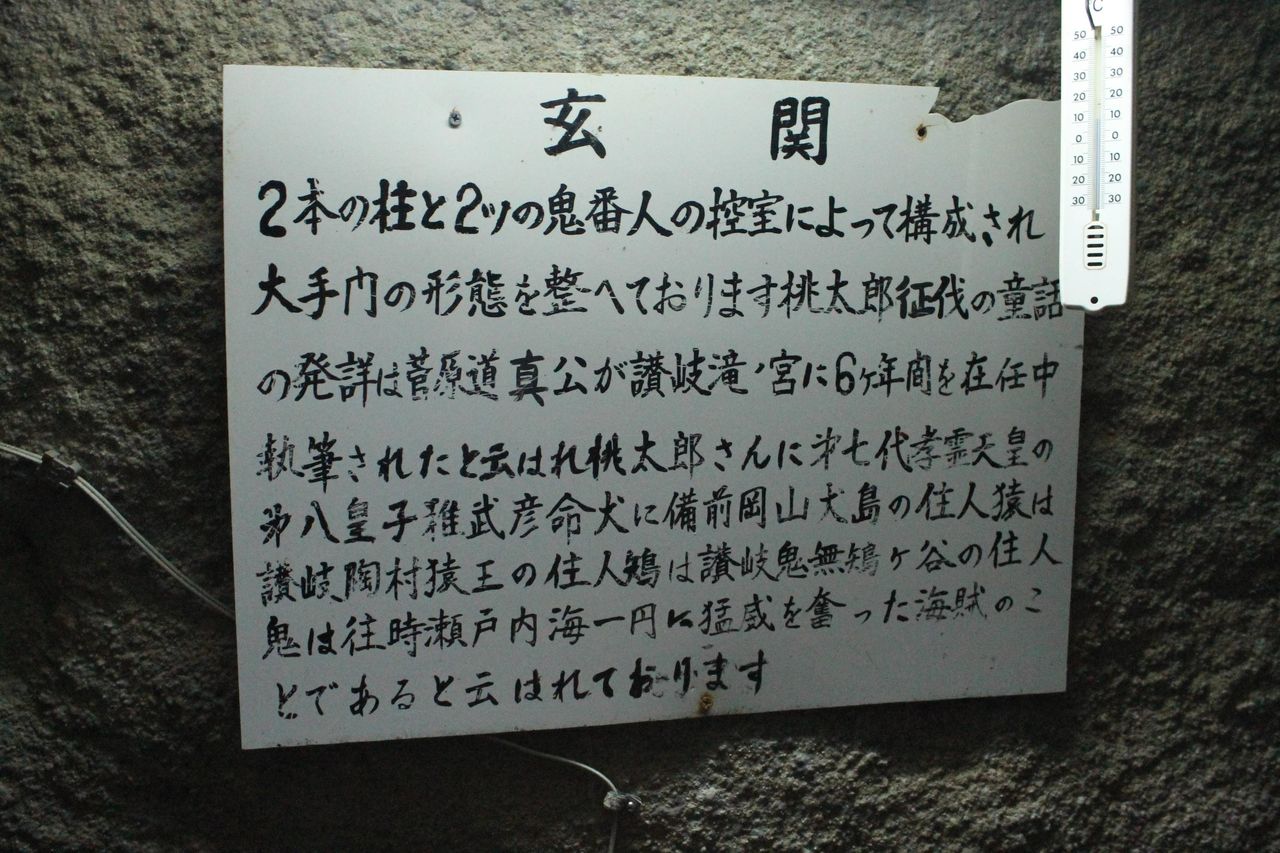 玄関
2本の柱と2ツの鬼番人の控室によって構成され
大手門の形態を整へております桃太郎征伐の童話
の発詳は菅原道真公が讃岐滝ノ宮に6ヶ年間を在任中
執筆されたと云はれ桃太郎さんに第七代孝霊天皇の
第八皇子稚武彦命犬に備前岡山犬島の住人猿は
讃岐陶村猿王の住人鶏は讃岐鬼無鶏ヶ谷の住人
鬼は往時瀬戸内海一円に猛威を奮った海賊のこ
とであると云はれております
°C
50 50
40 40
30 30
20 20
10 10
0 0
10 10
20 20
30 30